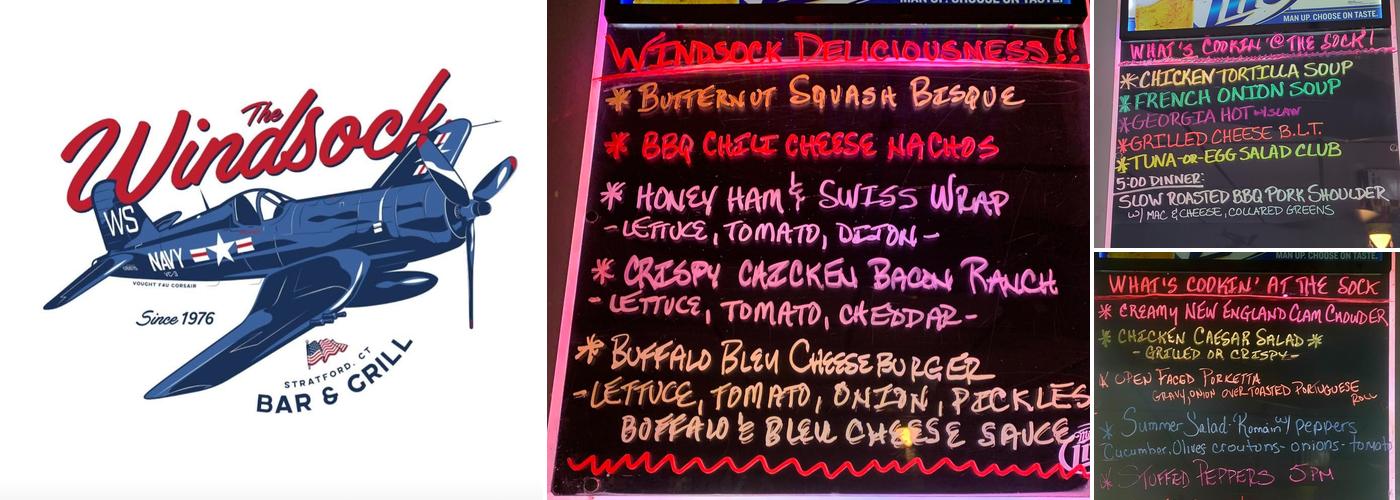 The
Windsock
WS
NAVY
VC-3
VOUGHT F4U CORSAIR
Since 1976
STRATFORD, CT
BAR & GRILL
MAN UP. CHOOSE ON TASTE.
WINDSOCK DELICIOUSNESS!!
* BUTTERNUT SQUASH BISQUE
* BBQ CHILI CHEESE NACHOS
* HONEY HAM & SWISS WRAP
- LETTUCE, TOMATO, DIJON -
* CRISPY CHICKEN BACON RANCH
- LETTUCE, TOMATO, CHEDDAR -
* BUFFALO BLEU CHEESEBURGER
- LETTUCE, TOMATO, ONION, PICKLES
BUFFALO & BLEU CHEESE SAUCE
MAN UP. CHOOSE ON TASTE.
WHAT'S COOKIN' @ THE SOCK!
* CHICKEN TORTILLA SOUP
* FRENCH ONION SOUP
* GEORGIA HOT w/SLAW
* GRILLED CHEESE B.L.T.
* TUNA-OR-EGG SALAD CLUB
5:00 DINNER:
SLOW ROASTED BBQ PORK SHOULDER
W/ MAC & CHEESE, COLLARED GREENS
MAN UP. CHOOSE ON TASTE.
WHAT'S COOKIN' AT THE SOCK
* CREAMY NEW ENGLAND CLAM CHOWDER
* CHICKEN CAESAR SALAD *
- GRILLED OR CRISPY -
* OPEN FACED PORKETTA
GRAVY, ONION OVER TOASTED PORTUGUESE
ROLL
* Summer Salad - Romain w/ peppers
Cucumber, Olives croutons - onions - tomato
* STUFFED PEPPERS 5PM